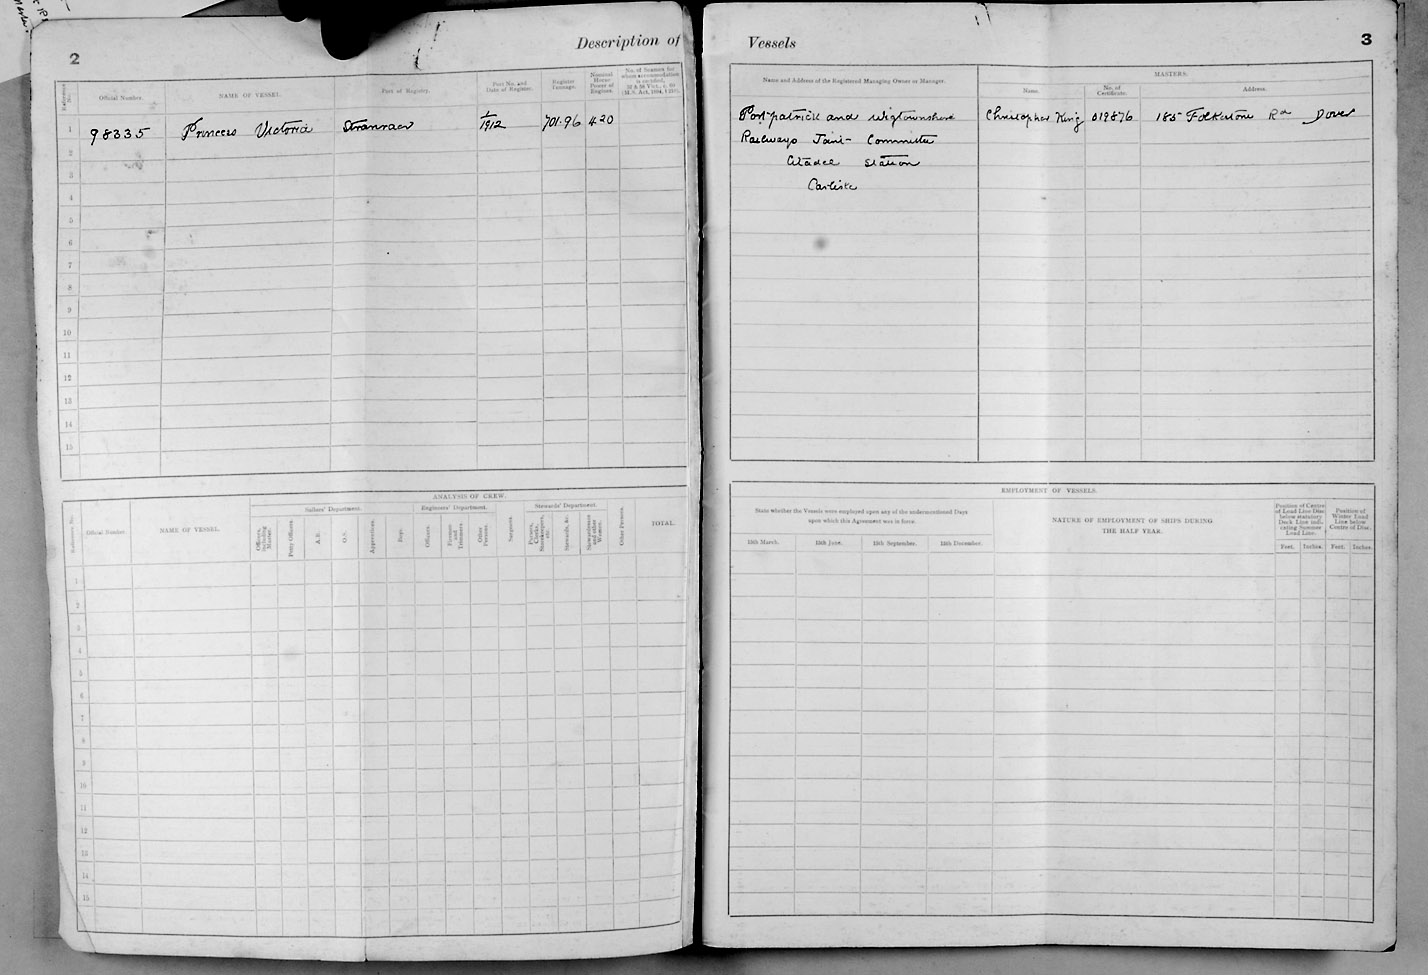 2
Description of
Reference No.
Official Number.
NAME OF VESSEL.
Port of Registry.
Port No. and Date of Register.
Register Tonnage.
Nominal Horse Power of Engines.
No. of Seamen for whom accommodation is certified,
1 98335 Princess Victoria Stranraer 1/1912 701.96 420
2
3
4
5
6
7
8
9
10
11
12
13
14
15
ANALYSIS OF CREW.
Reference No.
Official Number.
NAME OF VESSEL.
Sailors' Department.
Engineers' Department.
Stewards' Department.
Officers, including Master.
Petty Officers.
A.B.
O.S.
Apprentices.
Boys.
Officers.
Firemen and Trimmers.
Other Persons.
Surgeons.
Pursers, Clerks, Storekeepers, etc.
Stewards, &c.
Stewardesses and other Women.
Other Persons.
TOTAL.
1
2
3
4
5
6
7
8
9
10
11
12
13
14
15
Vessels
3
Name and Address of the Registered Managing Owner or Manager.
MASTERS.
Name.
No. of Certificate.
Address.
Portpatrick and Wigtownshire Christopher King 019876 185 Folkestone Rd Dover
Railways Joint Committee
Citadel Station
Carlisle
EMPLOYMENT OF VESSELS.
State whether the Vessels were employed upon any of the undermentioned Days
upon which this Agreement was in force.
15th March.
15th June.
15th September.
15th December.
NATURE OF EMPLOYMENT OF SHIPS DURING
THE HALF YEAR.
Position of Centre of Load Line Disc below statutory Deck Line indicating Summer Load Line.
Position of Winter Load Line below Centre of Disc.
Feet. Inches. Feet. Inches.